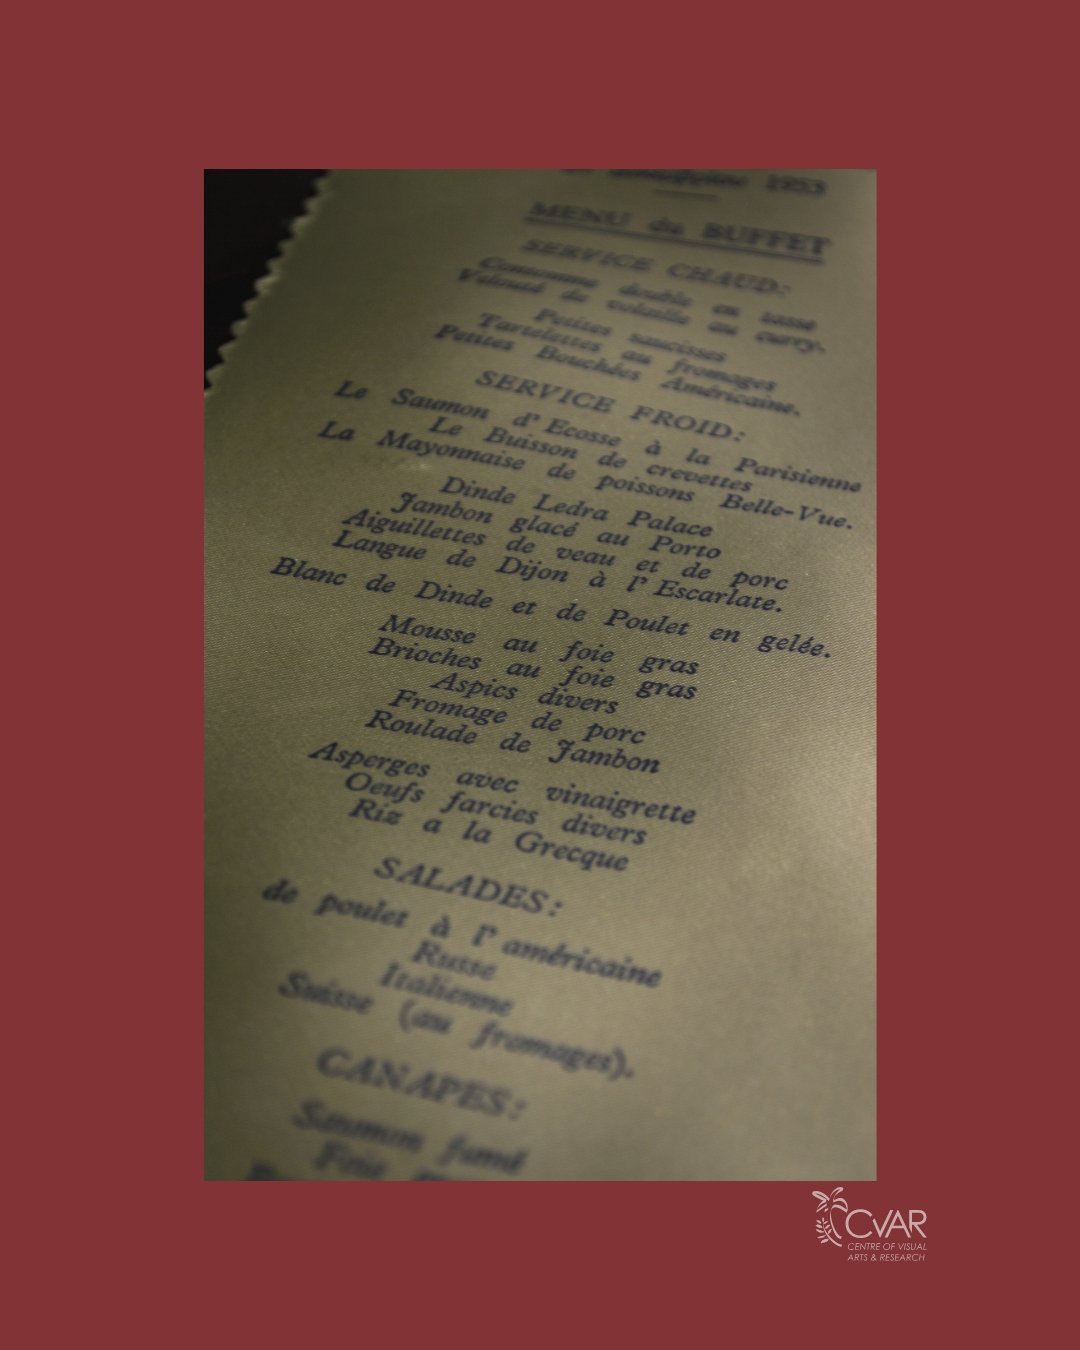 1953
MENU du BUFFET
SERVICE CHAUD:
Consomme double en tasse
Velouté de volaille au curry.
Petites saucisses
Tartelettes au fromages
Petites Bouchées Américaine.
SERVICE FROID:
Le Saumon d'Ecosse à la Parisienne
Le Buisson de crevettes
La Mayonnaise de poissons Belle-Vue.
Dinde Ledra Palace
Jambon glacé au Porto
Aiguillettes de veau et de porc
Langue de Dijon à l'Escarlate.
Blanc de Dinde et de Poulet en gelée.
Mousse au foie gras
Brioches au foie gras
Aspics divers
Fromage de porc
Roulade de Jambon
Asperges avec vinaigrette
Oeufs farcies divers
Riz a la Grecque
SALADES:
de poulet à l'américaine
Russe
Italienne
Suisse (au fromages).
CANAPES:
Saumon fumé
Foie
CVAR
CENTRE OF VISUAL
ARTS & RESEARCH